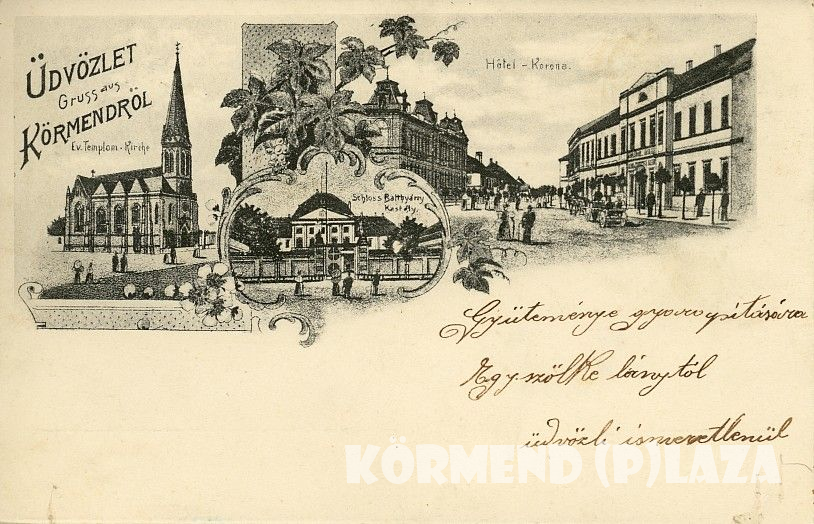 ÜDVÖZLET
Gruss aus
KÖRMENDRÖL
Ev. Templom - Kirche
Schloss Batthyány
Kastély.
Hôtel - Korona.
Gyüteménye gyarapitására
Egy szőlke lánytól
üdvözli ismeretlenül
KÖRMEND (P)LAZA